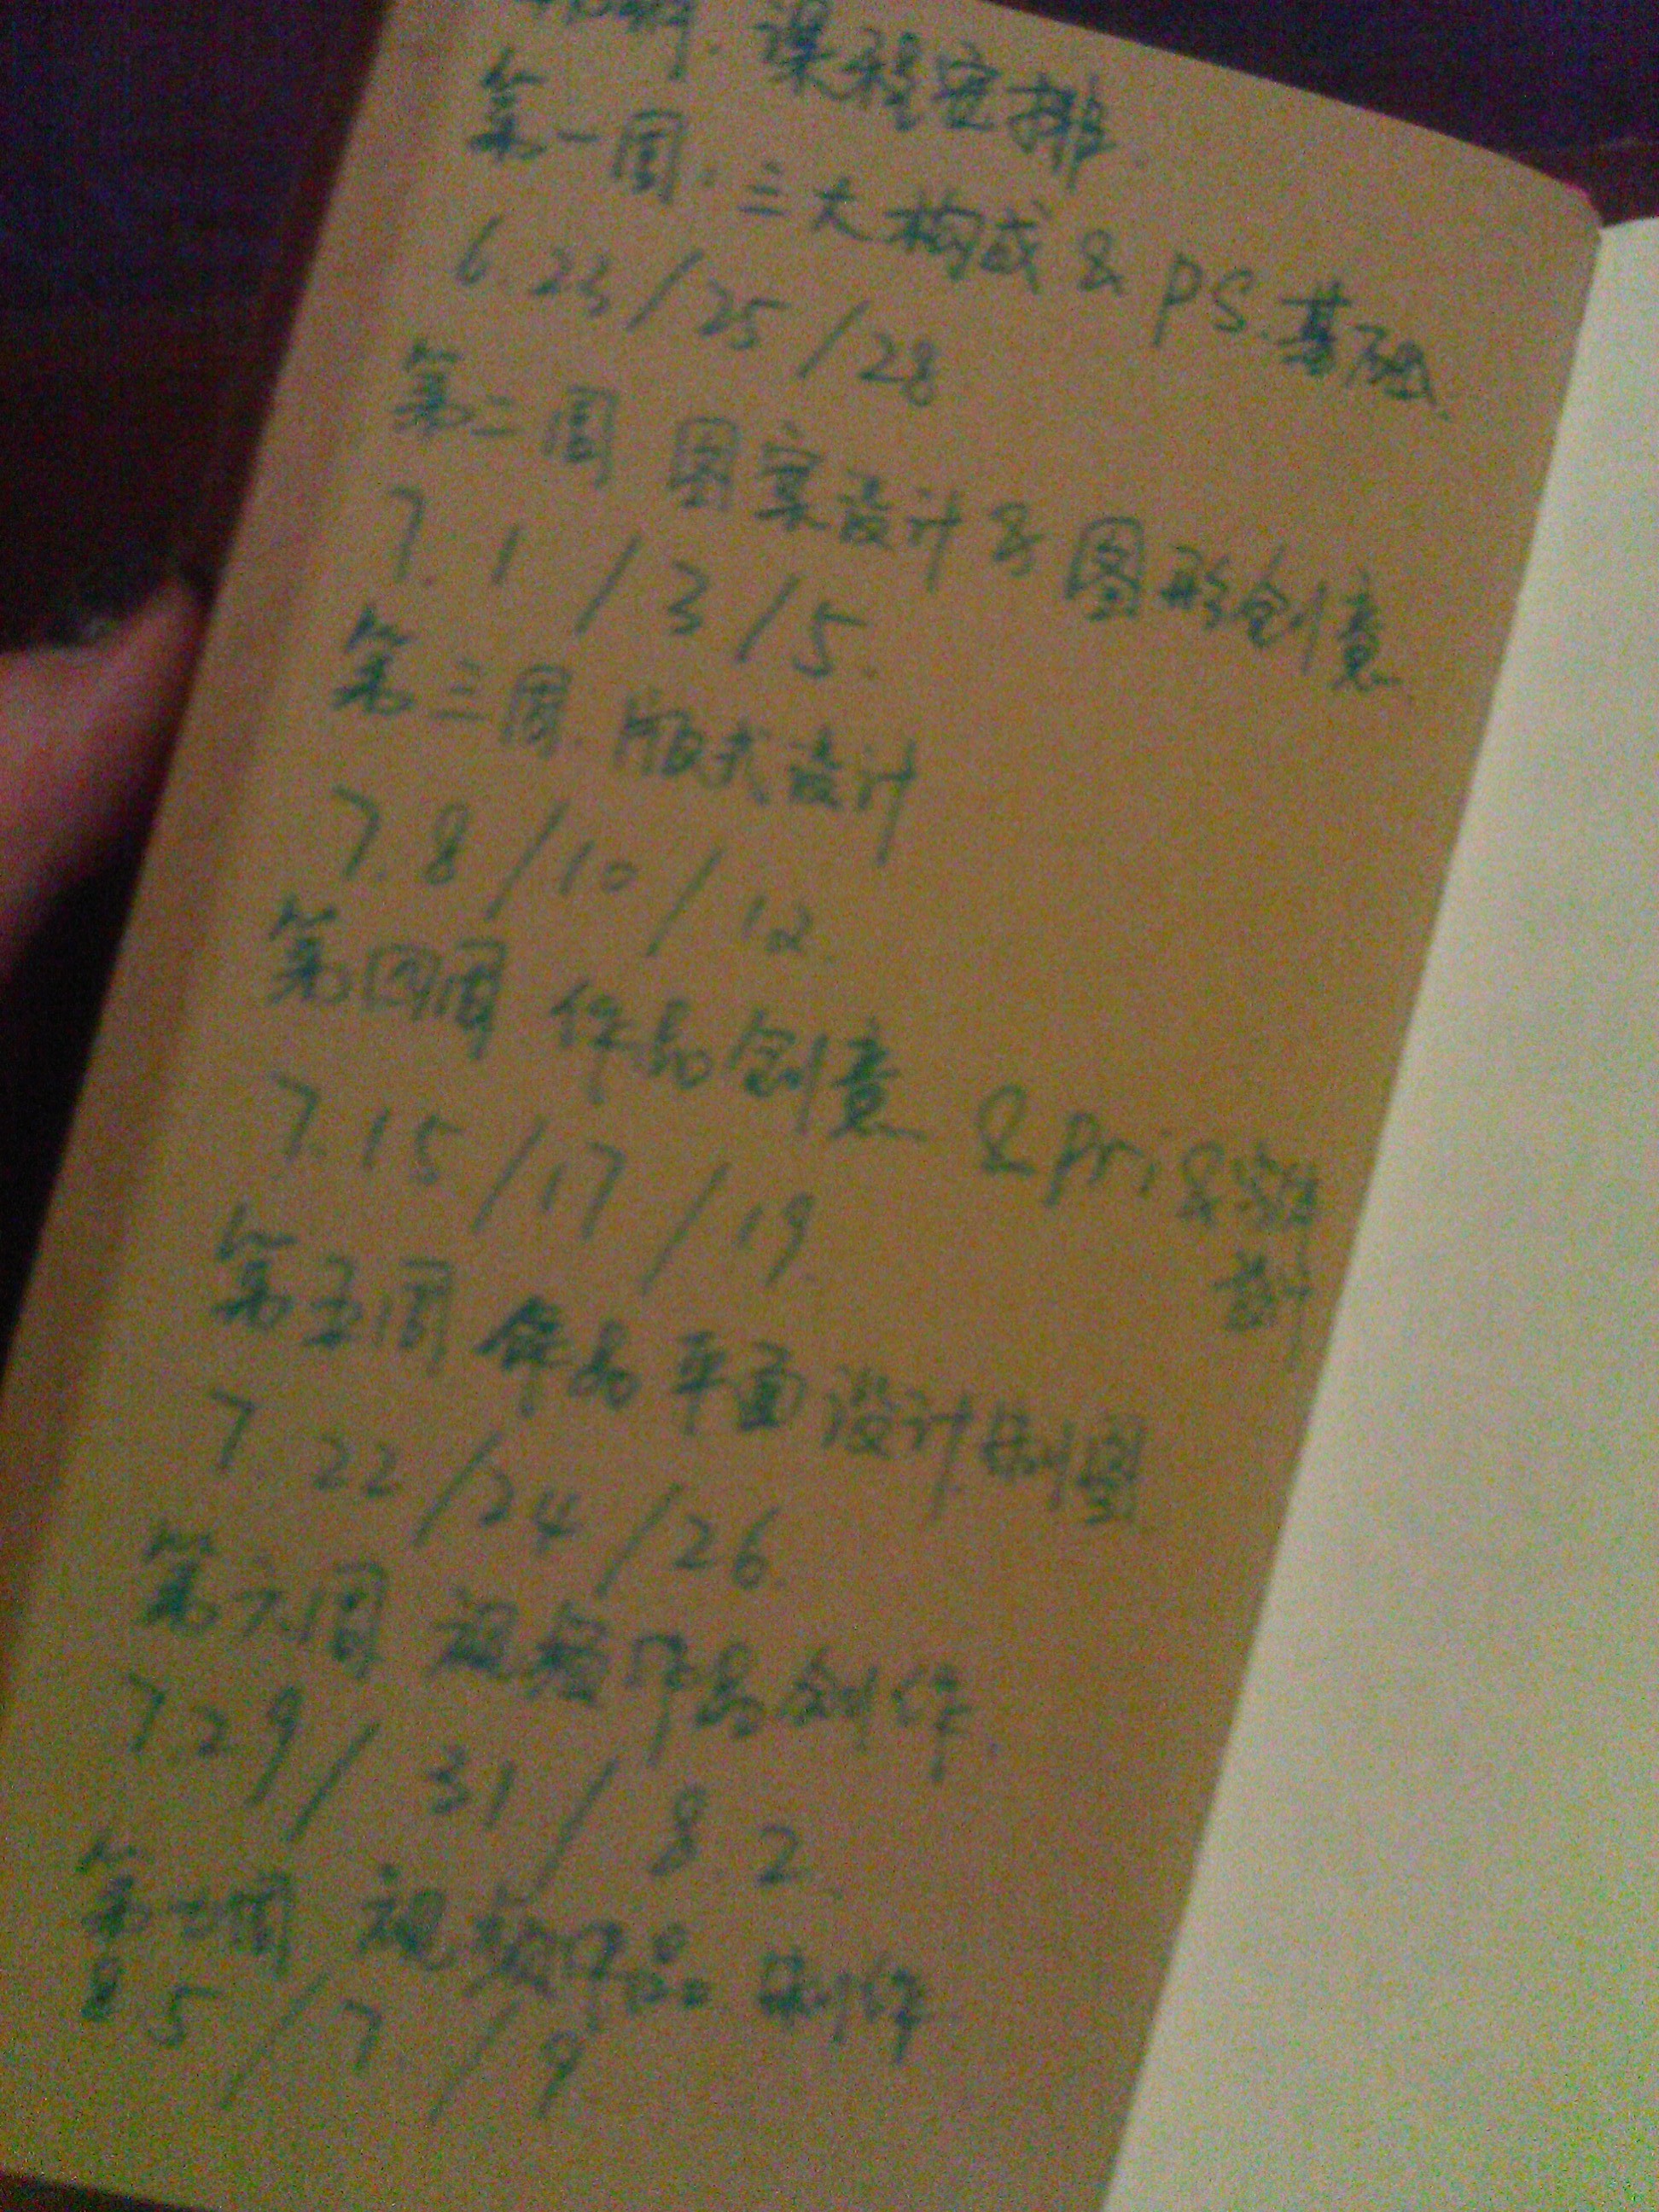 课程安排.
第一周:三大构成 & PS.基础.
6.23/25/28
第二周 图案设计 & 图形创意.
7.1/3/5.
第三周.版式设计
7.8/10/12.
第四周 作品创意 & pri &
设计
7.15/17/19.
第五周 作品平面设计制图
7.22/24/26.
第六周 视频作品创作.
7.29/31/8.2.
第七周 视频作品制作
8.5/7./9